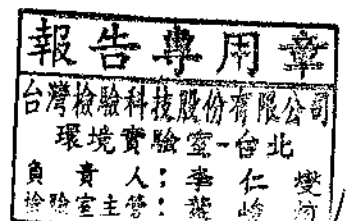 報告專用章
台灣檢驗科技股份有限公司
環境實驗室-台北
負責人：李仁燮
檢驗室主管：龔峻